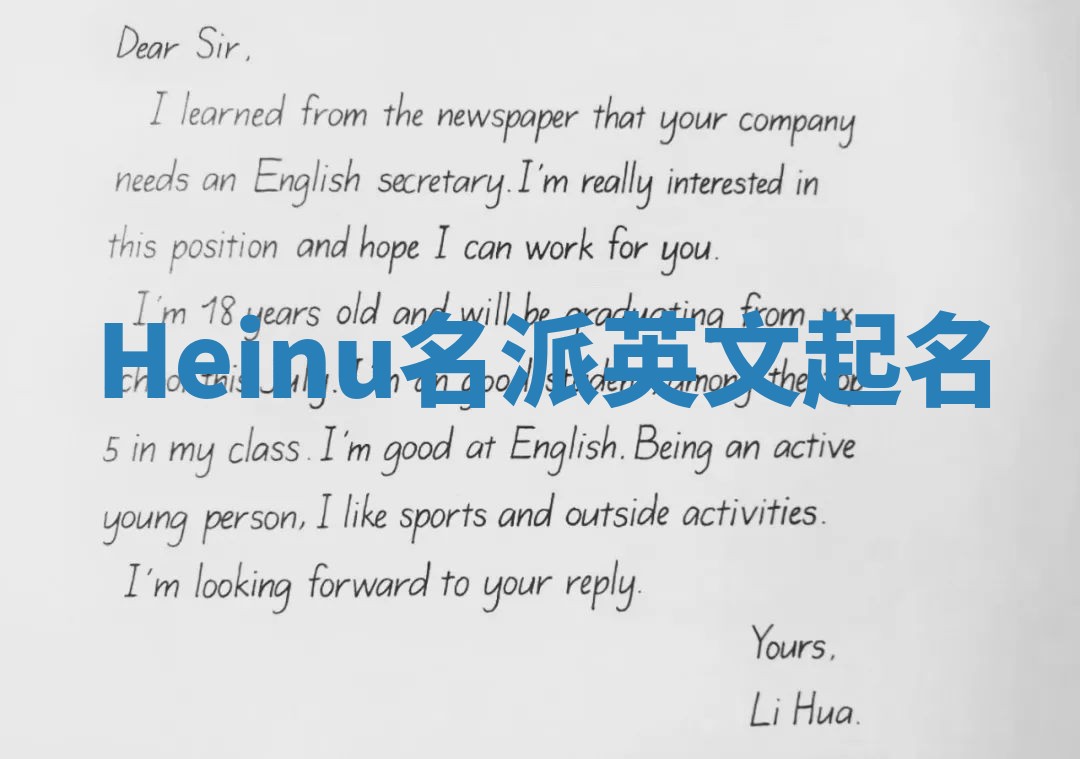 Dear Sir,
I learned from the newspaper that your company
needs an English secretary. I'm really interested in
this position and hope I can work for you.
I'm 18 years old and will be graduating from xx
Heinu名派英文起名
this July. I'm an good student, among the top
5 in my class. I'm good at English. Being an active
young person, I like sports and outside activities.
I'm looking forward to your reply.
Yours,
Li Hua.